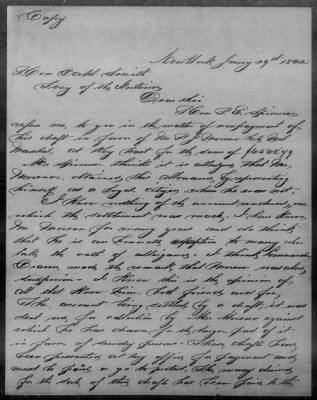 Copy
New York Jany 29th 1862
Hon Caleb Smith
Secy of the Interior
Dear Sir
Hon F. E. Spinner
refers me, to you in the matter of nonpayment of
his draft in favor of M. D. Moreno late
Marshal, at Key West for the sum of $6565.49
Mr. Spinner thinks it is alleged that Mr.
Moreno, obtained this allowance by representing
himself as a loyal citizen when he was not.
I know nothing of the account rendered, or on
which the settlement was made, I have known
Mr Moreno for many years and do think
that he is an honest exception to many who
take the oath of allegiance. I think Commander
Craven made the remark, that Moreno was above
suspicion & I know this is the opinion of
all who know him, both friends and foes,
The account being settled by a draft, it was
sent me, for collection by Mr Moreno against
which he has drawn, for the larger part of it
in favor of sundry persons. These drafts have
been presented at my office for payment and
must be paid, or go to protest. The money claimed
for the sale of this draft has been paid to the